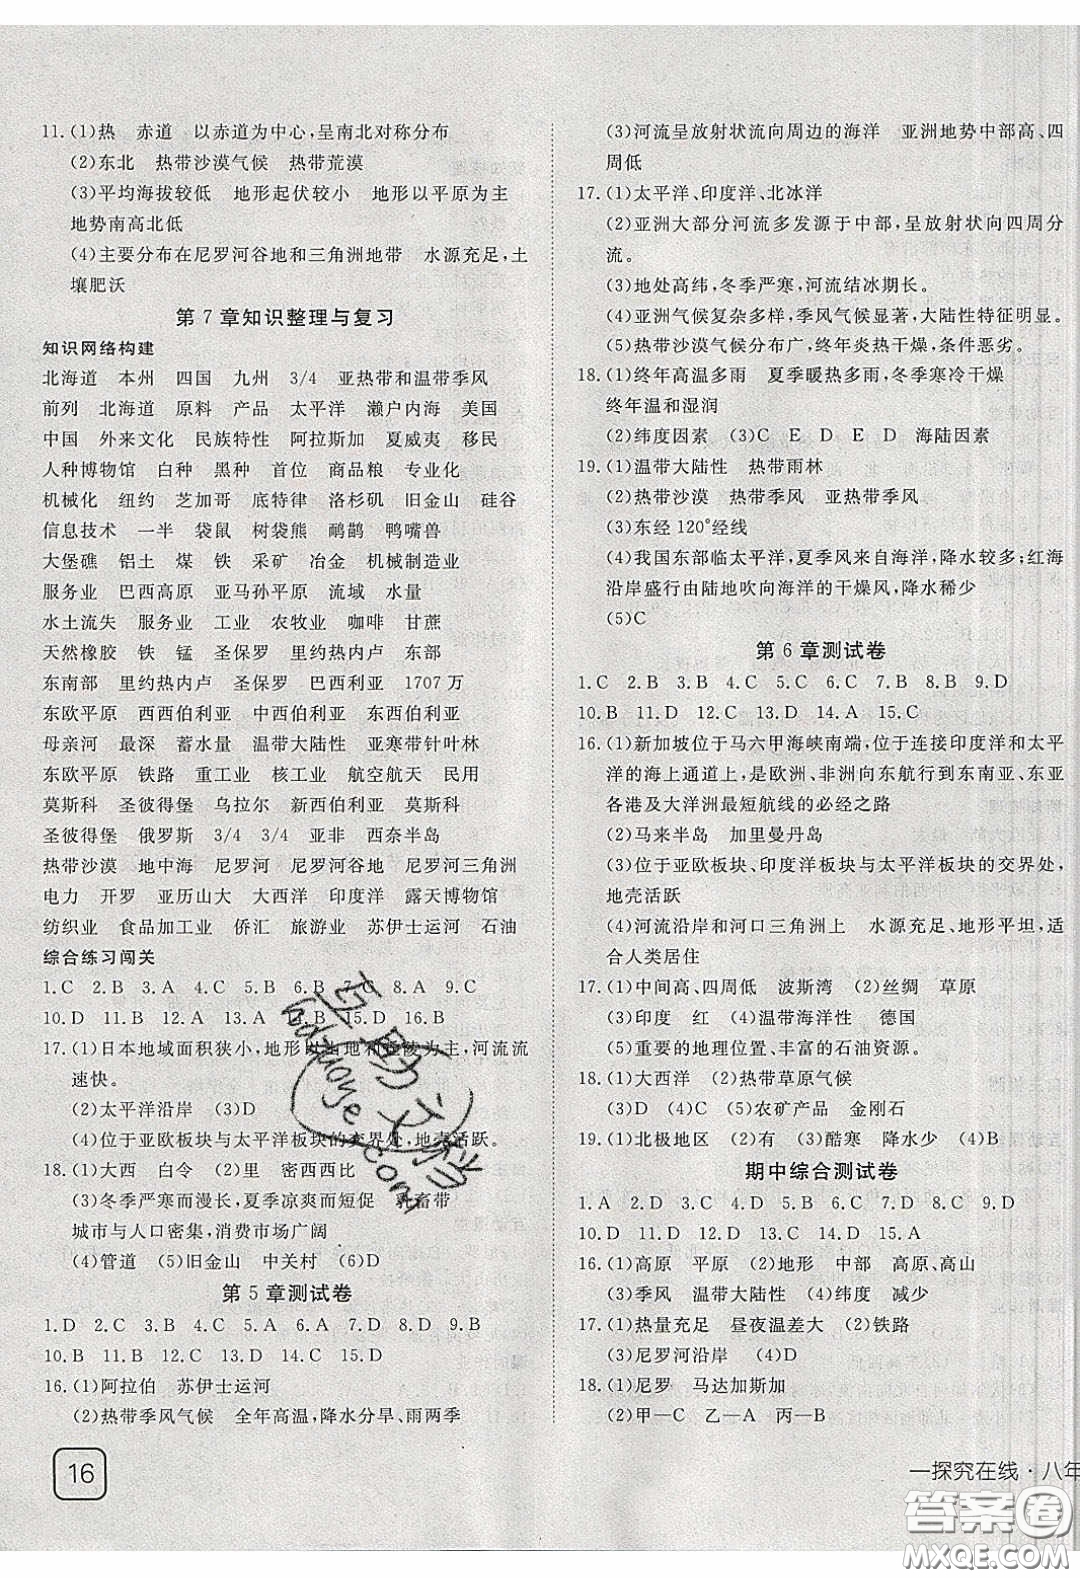 11.(1)热 赤道 以赤道为中心,呈南北对称分布
(2)东北 热带沙漠气候 热带荒漠
(3)平均海拔较低 地形起伏较小 地形以平原为主
地势南高北低
(4)主要分布在尼罗河谷地和三角洲地带 水源充足,土
壤肥沃
第7章知识整理与复习
知识网络构建
北海道 本州 四国 九州 3/4 亚热带和温带季风
前列 北海道 原料 产品 太平洋 濑户内海 美国
中国 外来文化 民族特性 阿拉斯加 夏威夷 移民
人种博物馆 白种 黑种 首位 商品粮 专业化
机械化 纽约 芝加哥 底特律 洛杉矶 旧金山 硅谷
信息技术 一半 袋鼠 树袋熊 鸸鹋 鸭嘴兽
大堡礁 铝土 煤 铁 采矿 冶金 机械制造业
服务业 巴西高原 亚马孙平原 流域 水量
水土流失 农业 工业 农牧业 咖啡 甘蔗
天然橡胶 铁 锰 圣保罗 里约热内卢 东部
东南部 里约热内卢 圣保罗 巴西利亚 1707万
东欧平原 西西伯利亚 中西伯利亚 东西伯利亚
母亲河 最深 蓄水量 温带大陆性 亚寒带针叶林
东欧平原 铁路 重工业 核工业 航空航天 民用
莫斯科 圣彼得堡 乌拉尔 新西伯利亚 莫斯科
圣彼得堡 俄罗斯 3/4 3/4 亚非 西奈半岛
热带沙漠 地中海 尼罗河 尼罗河谷地 尼罗河三角洲
电力 开罗 亚历山大 大西洋 印度洋 露天博物馆
纺织业 食品加工业 侨汇 旅游业 苏伊士运河 石油
综合练习闯关
1.C 2.B 3.A 4.A 5.C 6.B 7.C 8.A 9.C
10.D 11.B 12.A 13.A 14.B 15.D 16.B
17.(1)日本地域面积狭小,地形以山地和丘陵为主,河流流
速快。
(2)太平洋沿岸 (3)D
(4)位于亚欧板块与太平洋板块的交界处,地壳活跃。
18.(1)大西 白令 (2)里 密西西比
(3)冬季严寒而漫长,夏季凉爽而短促 乳畜带
城市与人口密集,消费市场广阔
(4)管道 (5)旧金山 中关村 (6)D
第5章测试卷
1.D 2.C 3.B 4.C 5.A 6.B 7.D 8.D 9.B
10.B 11.D 12.B 13.C 14.C 15.D
16.(1)阿拉伯 苏伊士运河
(2)热带季风气候 全年高温,降水分旱、雨两季
16
(3)河流呈放射状流向周边的海洋 亚洲地势中部高、四
周低
17.(1)太平洋、印度洋、北冰洋
(2)亚洲大部分河流多发源于中部,呈放射状向四周分
流。
(3)地处高纬,冬季严寒,河流结冰期长。
(4)亚洲气候复杂多样,季风气候显著,大陆性特征明显。
(5)热带沙漠气候分布广,终年炎热干燥,条件恶劣。
18.(1)终年高温多雨 夏季暖热多雨,冬季寒冷干燥
终年温和湿润
(2)纬度因素 (3)C E D E D A 海陆因素
19.(1)温带大陆性 热带雨林
(2)热带沙漠 热带季风 亚热带季风
(3)东经120°经线
(4)我国东部临太平洋,夏季风来自海洋,降水较多;红海
沿岸盛行由陆地吹向海洋的干燥风,降水稀少
(5)C
第6章测试卷
1.C 2.B 3.B 4.D 5.C 6.D 7.B 8.B 9.D
10.B 11.D 12.C 13.D 14.A 15.C
16.(1)新加坡位于马六甲海峡南端,位于连接印度洋和太平
洋的海上通道上,是欧洲、非洲向东航行到东南亚、东亚
各港及大洋洲最短航线的必经之路
(2)马来半岛 加里曼丹岛
(3)位于亚欧板块、印度洋板块与太平洋板块的交界处,
地壳活跃
(4)河流沿岸和河口三角洲上 水源充足、地形平坦,适
合人类居住
17.(1)中间高、四周低 波斯湾 (2)丝绸 草原
(3)印度 红 (4)温带海洋性 德国
(5)重要的地理位置、丰富的石油资源。
18.(1)大西洋 (2)热带草原气候
(3)D (4)C (5)农矿产品 金刚石
19.(1)北极地区 (2)有 (3)酷寒 降水少 (4)B
期中综合测试卷
1.A 2.D 3.D 4.A 5.B 6.C 7.D 8.C 9.D
10.D 11.D 12.C 13.D 14.D 15.A
16.(1)高原 平原 (2)地形 中部 高原、高山
(3)季风 温带大陆性 (4)纬度 减少
17.(1)热量充足 昼夜温差大 (2)铁路
(3)尼罗河沿岸 (4)D
18.(1)尼罗 马达加斯加
(2)甲—C 乙—A 丙—B
一探究在线·八年
答案卷
MXQE.COM